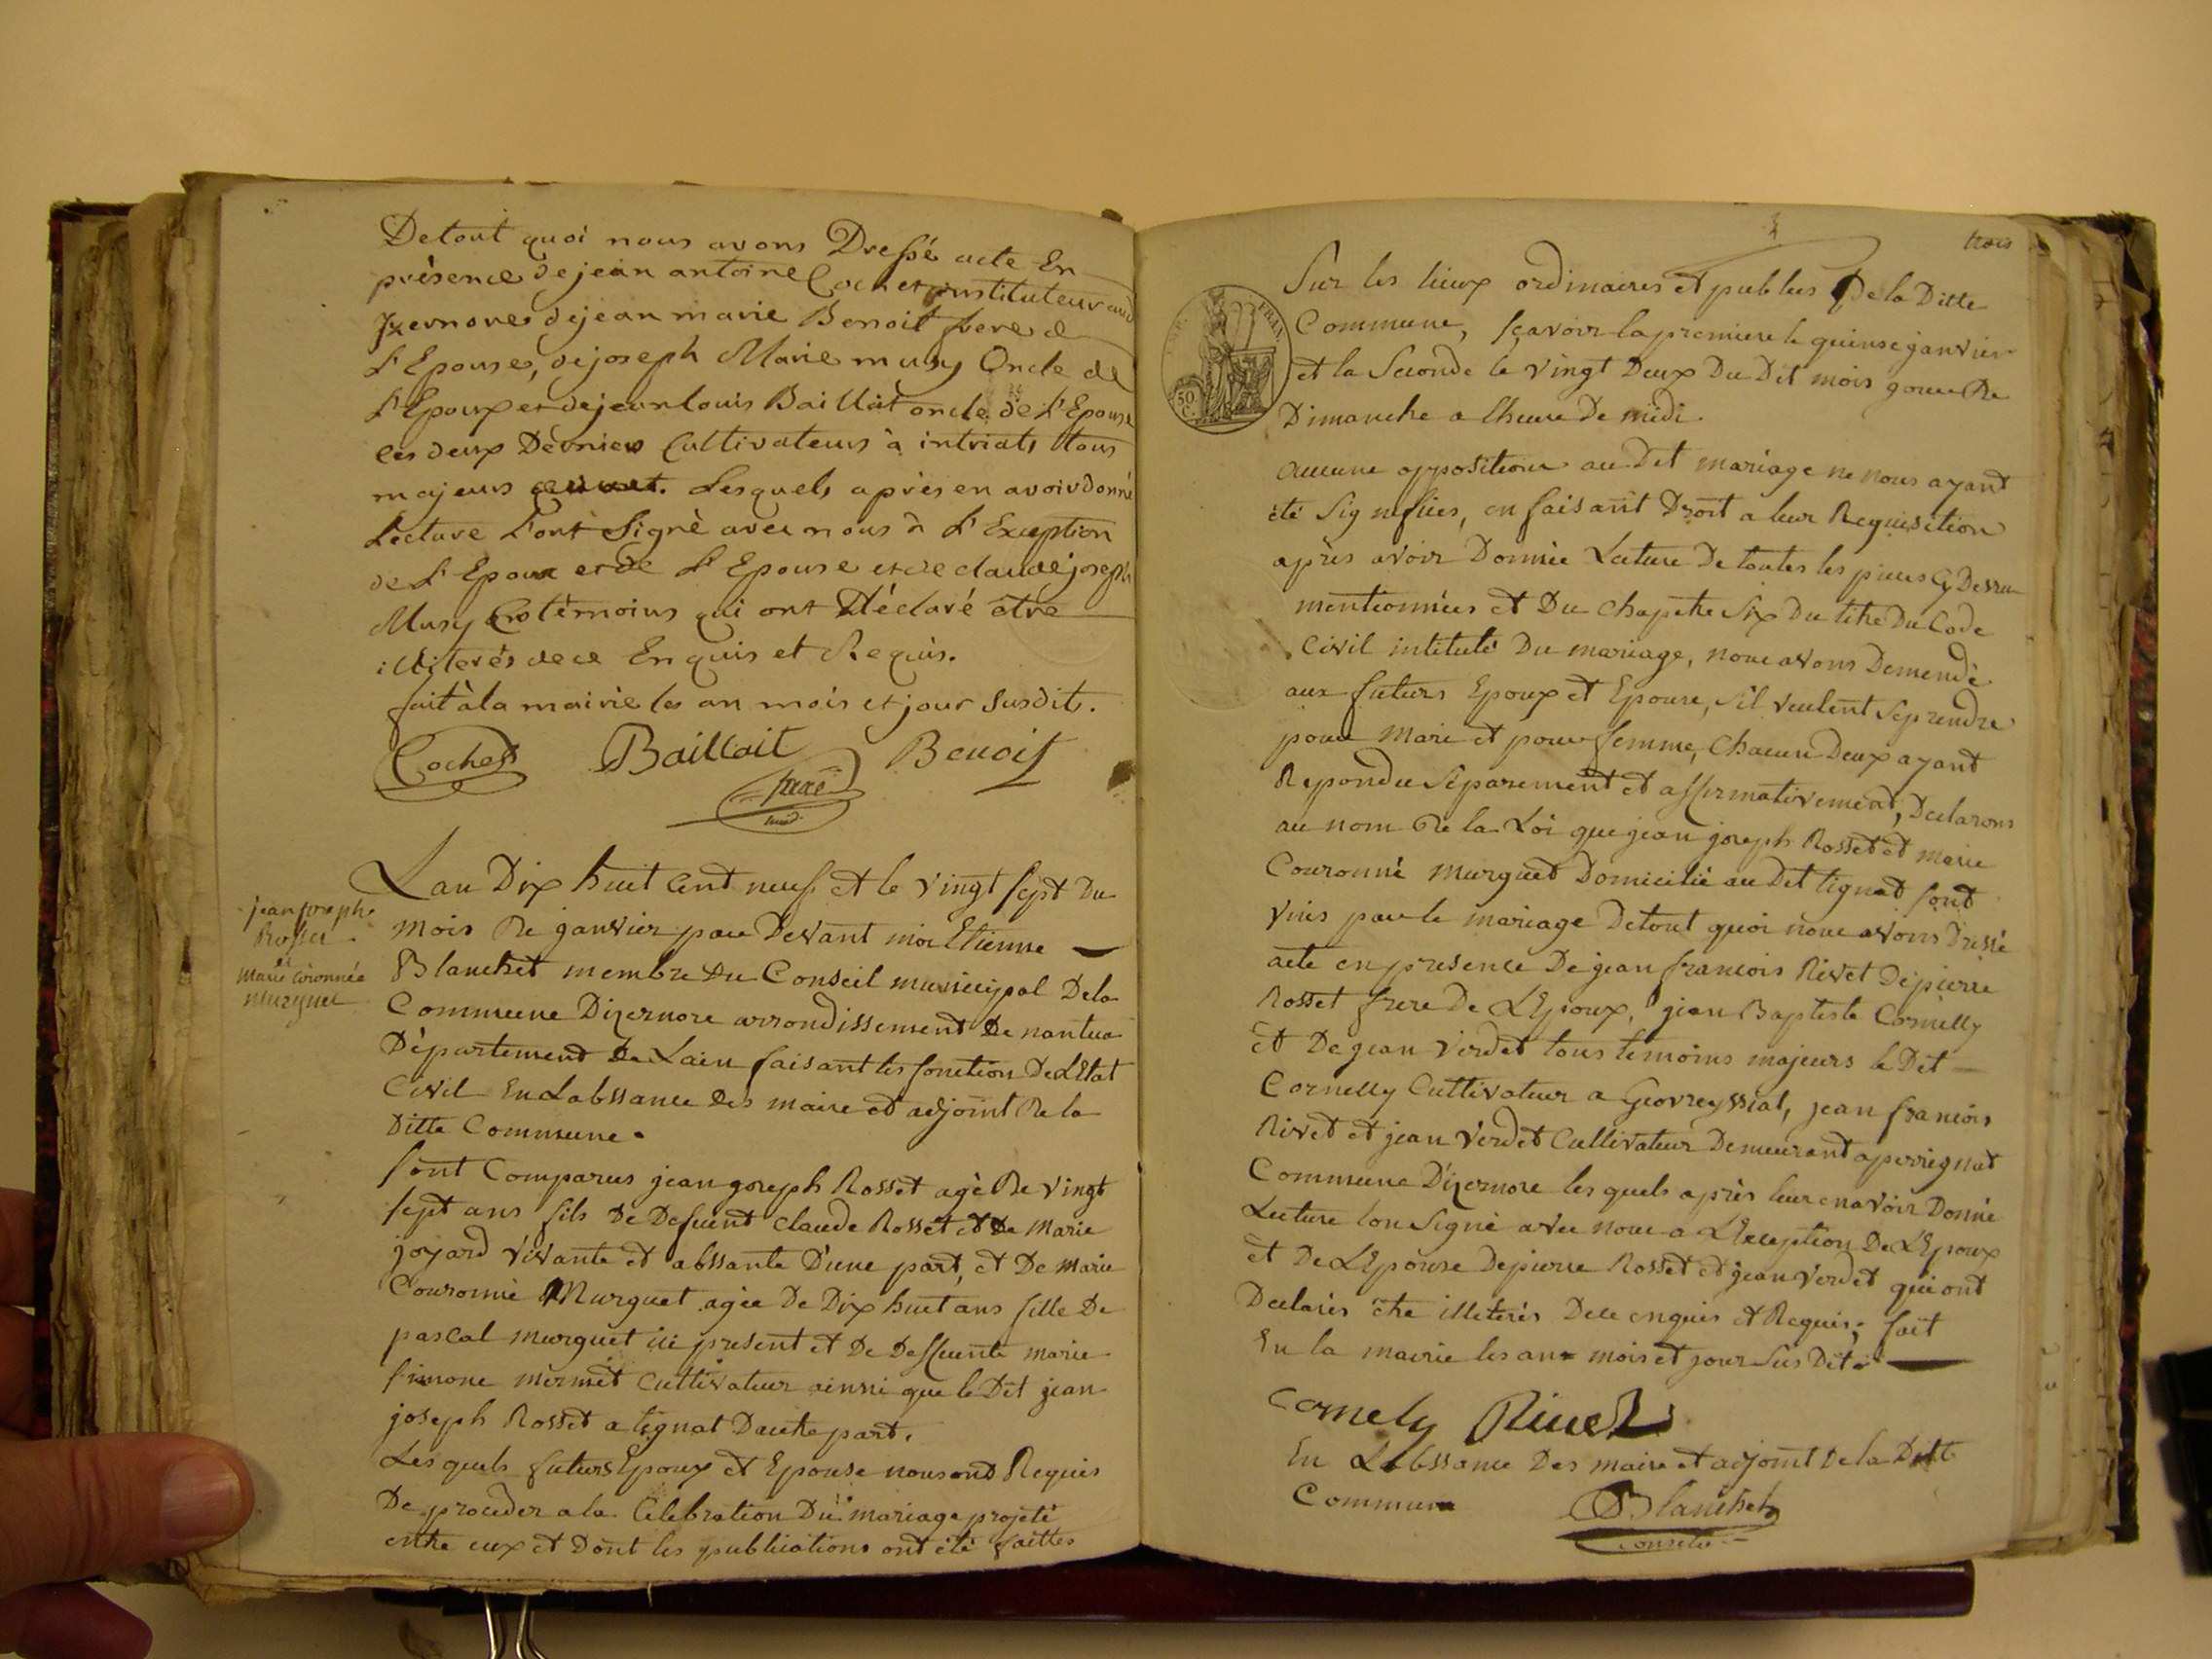 Detout quoi nous avons Dressé acte En
présence dejean antoine Cochet instituteur aud
Izernore dejean marie Benoit frere de
L'Epouse, dejoseph Marie musy Oncle de
L'Epoux et dejean louis Baillat oncle de L'Epouse
les deux Dernier Cultivateurs à intriats tous
majeurs Lesquels après en avoir donné
Lecture l'ont Signé avec nous à L'Exception
de L'Epoux et de L'Epouse et de claude joseph
Musy témoins qui ont Déclaré être
illiterés de ce Enquis et Requis.
fait à la mairie les an mois et jour susdits.
Cochet Baillait Benoit
jean joseph
Rosset
et
marie Coronnée
murguet
Lan Dix huit Cent neuf et le vingt sept Du
mois De janvier par Devant moi Etienne
Blanchet membre Du Conseil municipal Dela
Commune Dizernore arrondissement De nantua
Département De Lain faisant les fonction De LEtat
Civil En Labssance Des maire et adjoint De la
Ditte Commune.
Sont Comparus jean joseph Rosset agè De vingt
sept ans fils De Defuent claude Rosset et De marie
joyard vivante et abssante D'une part, et De marie
Couronné Murguet agée De Dix huit ans fille De
pascal murguet ici present et De Deffuente marie
simone mermet Cultivateur ainsi que le Dit jean
joseph Rosset a tignat Dautre part.
Les quels futurs Epoux et Epouse nous ont Requis
De proceder a la Célébration Du mariage projeté
entre eux et Dont les publications ont été faittes
trois
Sur les lieux ordinaires et publics De la Ditte
Commune, sçavoir la premiere le quinse janvier
et la Seconde le vingt Deux Du Dit mois jour De
Dimanche a lheure De midi.
aucune opposition au Dit mariage ne nous ayant
été Signifiées, en faisant Droit a leur Requisition
après avoir Donnée Lecture De toutes les pieces Cy Dessu
mentionnées et Du chapitre Six Du titre Du Code
Civil intitulé Du mariage, nous avons Demendé
aux futurs Epoux et Epouse, s'il veulent Se prendre
pour mari et pour femme, Chacun Deux ayant
Repondu Séparement et affirmativement, Declarons
au nom De la Loi que jean joseph Rosset et marie
Couronné murguet Domicilié au Dit tignat sont
unis par le mariage Detout quoi nous avons Dressé
acte en presence De jean francois Rivet De pierre
Rosset frere De LEpoux, jean Baptiste Cornelly
et De jean verdet tous temoins majeurs le Dit
Cornelly Cultivateur a Geovreyssiat, jean francois
Rivet et jean verdet Cultivateur Demeurant a perignat
Commune D'izernore les quels après leur en avoir Donné
Lecture lon Signé avec nous a LExeption De LEpoux
et De LEpouse De pierre Rosset et jean verdet qui ont
Declarés être illeterés De ce enquis et Requis; fait
En la mairie les an mois et jour Sus Dit
Cornely Rivet
En Labssance Des maire et adjoint De la Ditte
Commune Blanchet